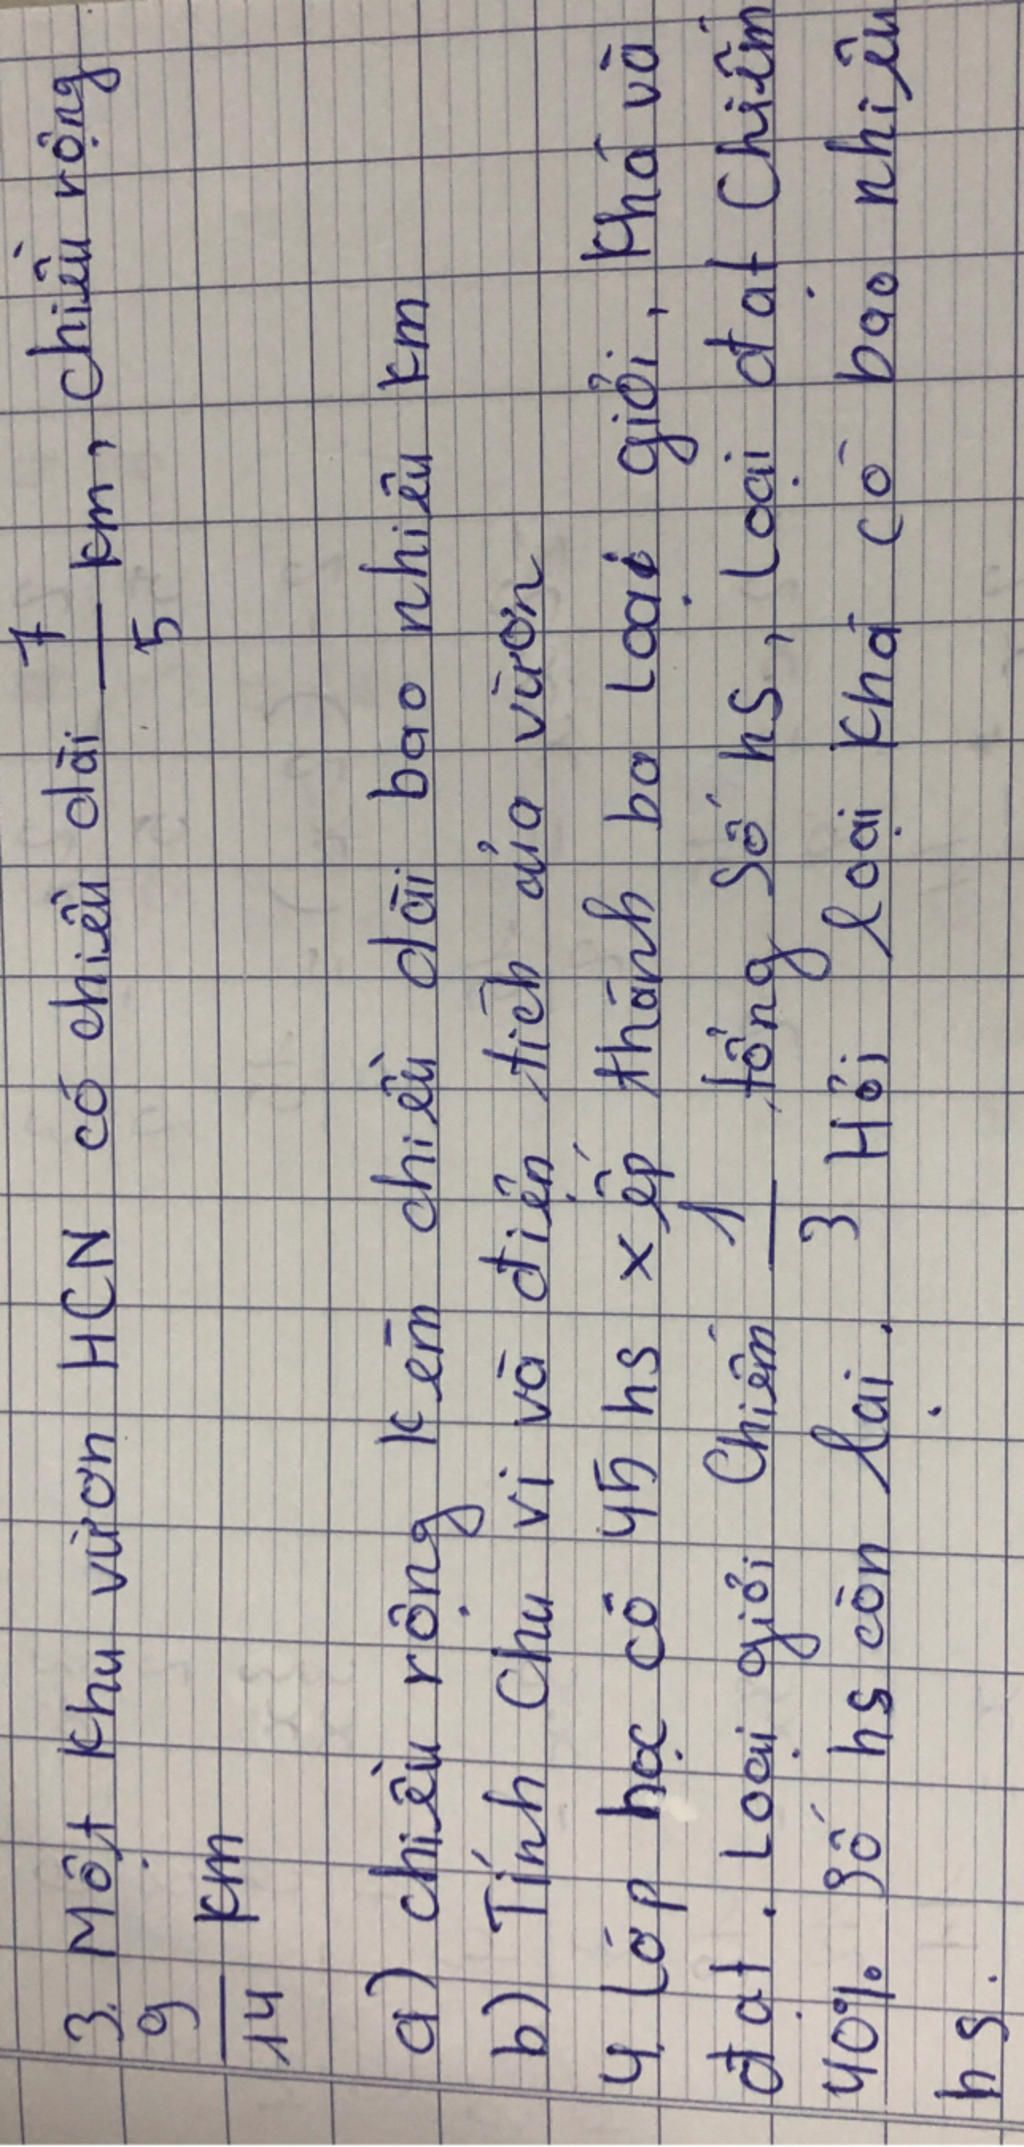 3. Một khu vườn HCN có chiều dài 7/5 km, chiều rộng
9/14 km
a) chiều rộng kém chiều dài bao nhiêu km
b) Tính Chu vi và điện tích của vườn
4 lớp học có 45 hs xếp thành ba loại giỏi, khá và
đạt. Loại giỏi Chiếm 1/3 tổng số hs, Loại đạt Chiếm
40% số hs còn lại. Hỏi loại khá có bao nhiêu
hs.